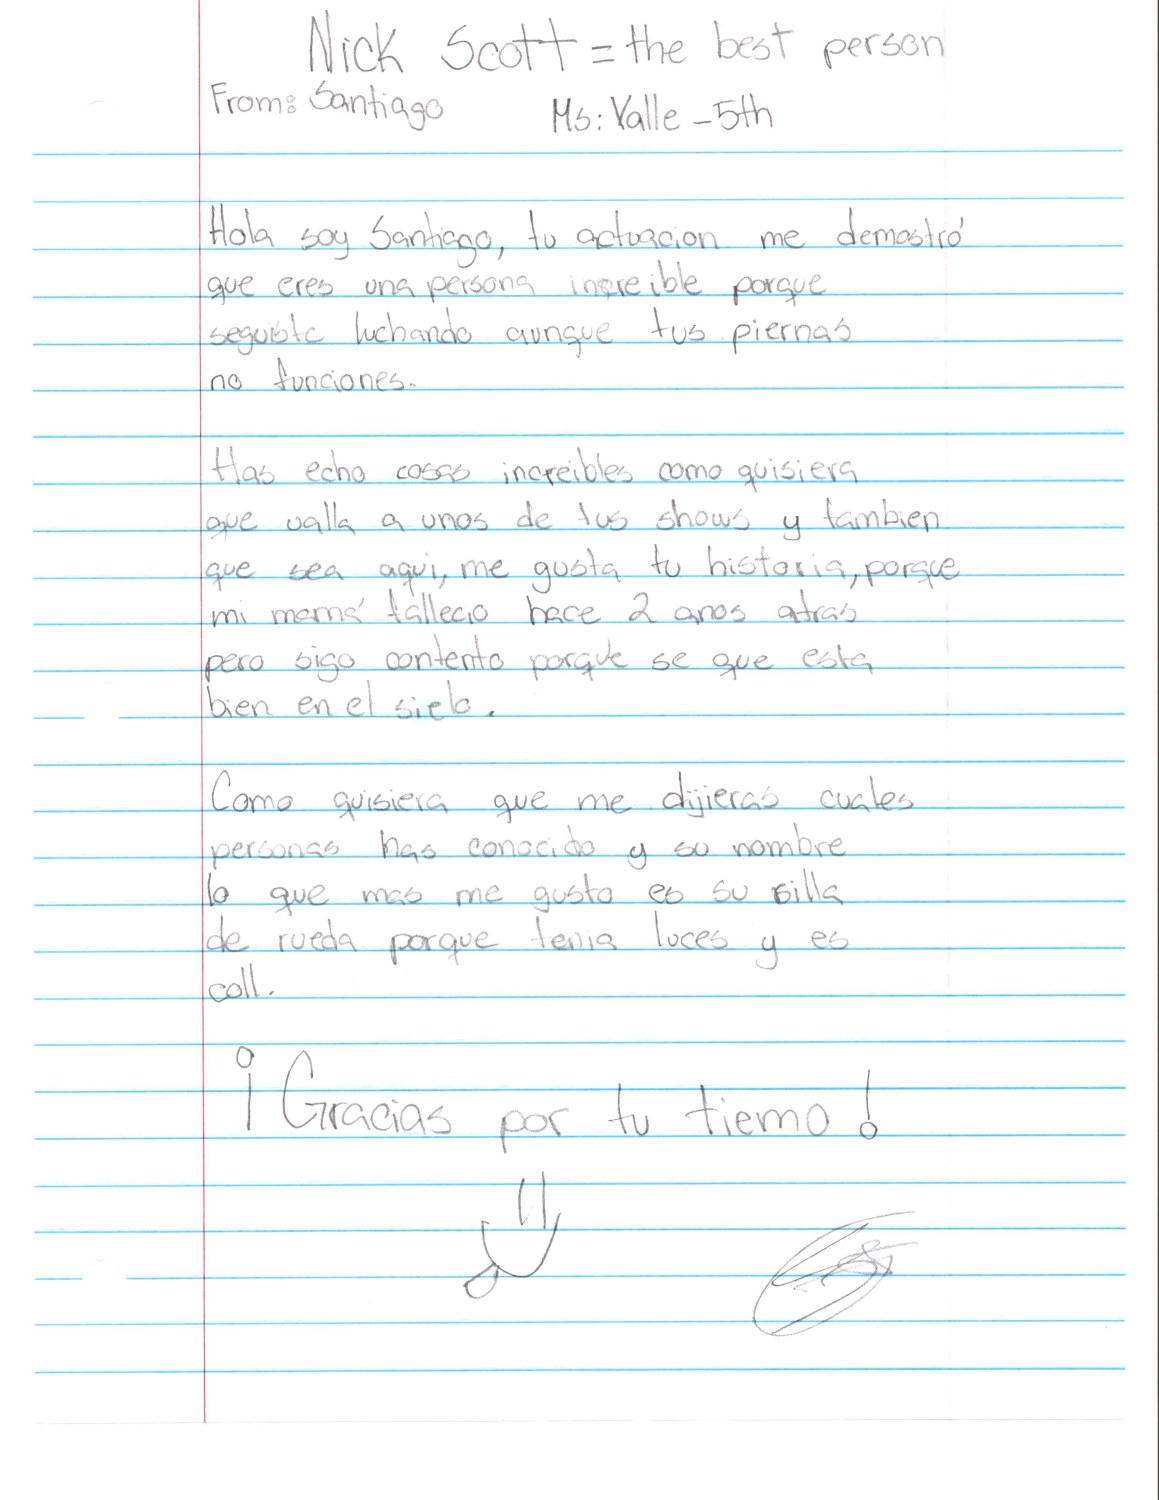 Nick Scott = the best person
From: Santiago Ms: Valle - 5th
Hola soy Santiago, tu actuacion me demostró
que eres una persona increible porque
seguiste luchando aunque tus piernas
no funciones.
Has echo cosas increibles como quisiera
que valla a unos de tus shows y tambien
que sea aqui, me gusta tu historia, porque
mi mamá fallecio hace 2 anos atras
pero sigo contento porque se que esta
bien en el sielo.
Como quisiera que me dijieras cuales
personas has conocido y su nombre
lo que mas me gusto es su silla
de rueda porque tenia luces y es
coll.
¡Gracias por tu tiemo!